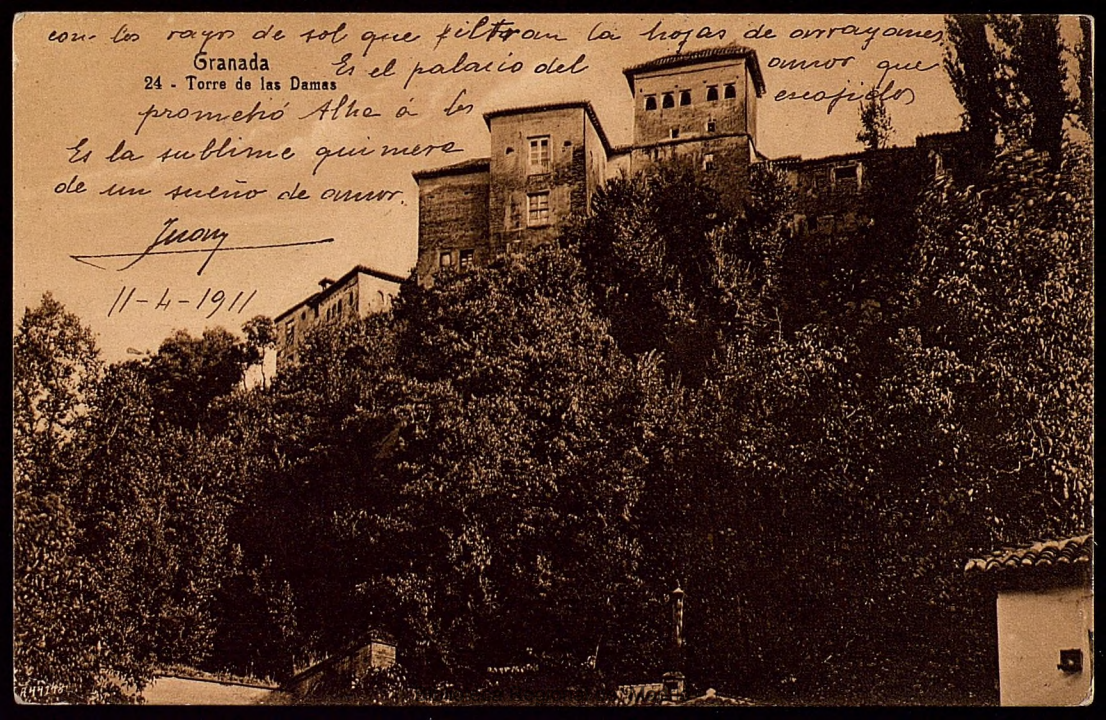 con los rayos de sol que filtran la hojas de arrayanes
Granada
24 - Torre de las Damas
Es el palacio del amor que
prometió Alha á los escojidos
Es la sublime quimera
de un sueño de amor.
Juan
11-4-1911